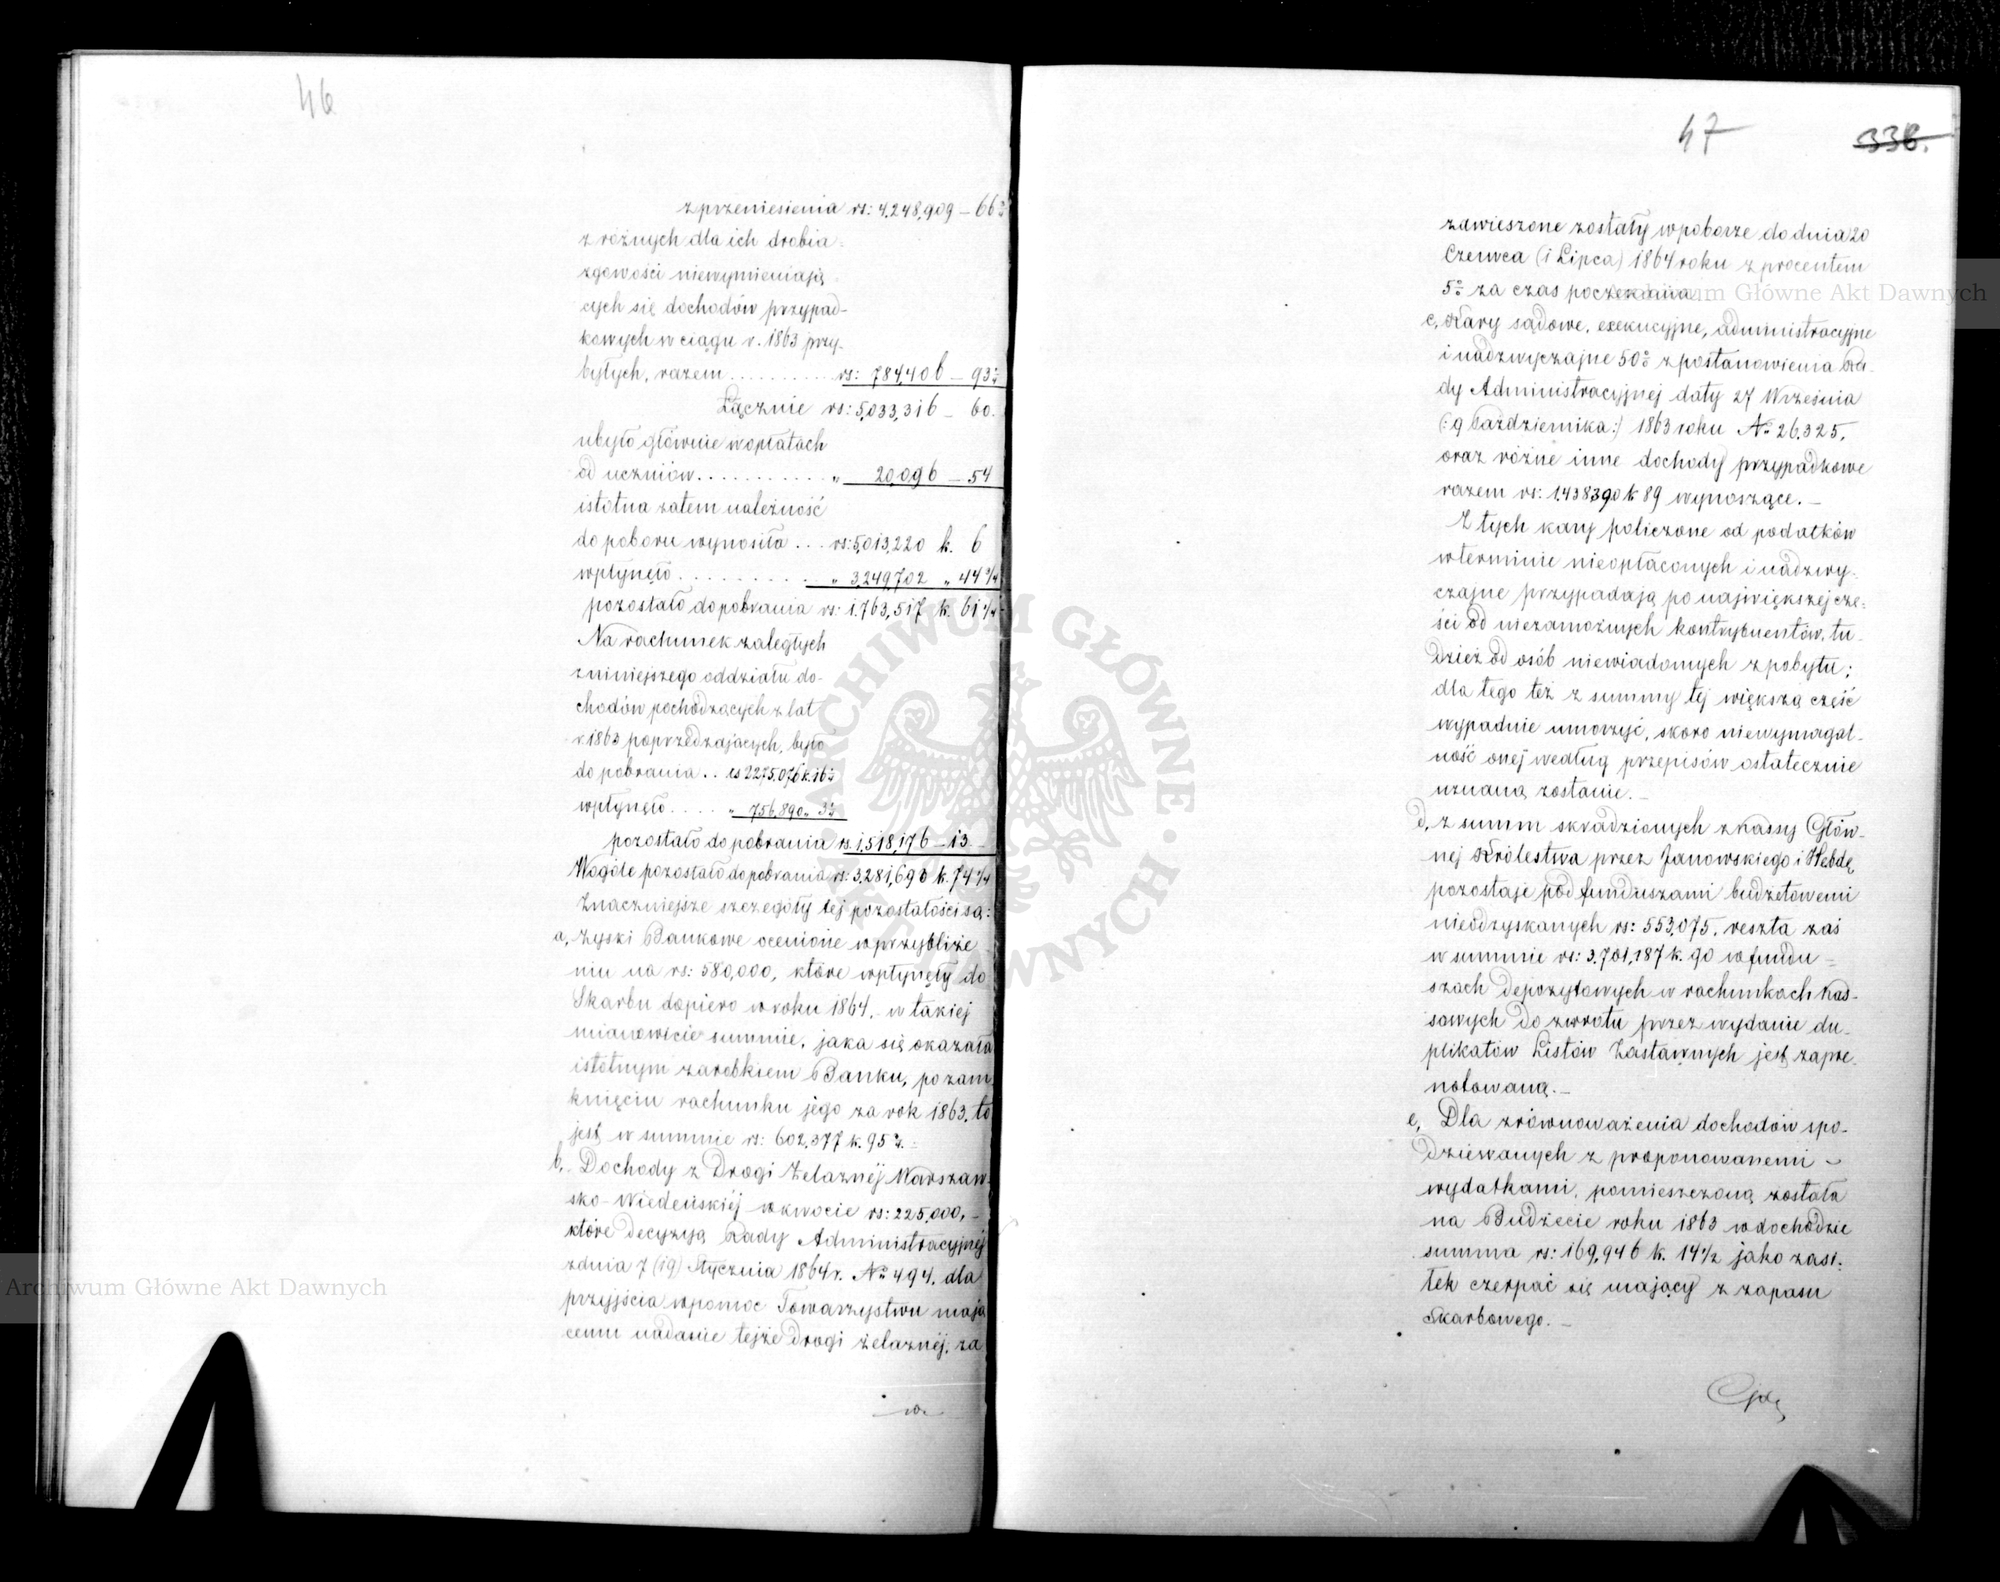 46
z przeniesienia rs: 4,248,909 – 66½
z różnych dla ich drobia-
zgowości niewymieniają
cych się dochodów przypad-
kowych w ciągu r. 1863 przy-
bytych, razem .......... rs: 784,406 – 93½
Łącznie rs: 5,033,316 – 60.
ubyło głównie w opłatach
od uczniów ............ „ 20,096 – 54
istotna zatem należność
do poboru wynosiła ... rs: 5,013,220 k. 6
wpłynęło .......... „ 3,249,702 „ 44¾
pozostało do pobrania rs: 1,763,517 k. 61¼
Na rachunek zaległych
z niniejszego oddziału do-
chodów pochodzących z lat
r. 1863 poprzedzających, było
do pobrania .. rs 2,275,076 k. 16½
wpłynęło ..... „ 756,890 „ 3½
pozostało do pobrania rs. 1,518,176 – 13 –
Wogóle pozostało do pobrania rs: 3,281,693 k. 74¼
Znaczniejsze szczegóły tej pozostałości są:
a, Zyski Bankowe ocenione w przybliże
niu na rs: 580,000, które wpłynęły do
Skarbu dopiero w roku 1864, w takiej
mianowicie summie, jaka się okazała
istotnym zarobkiem Banku, po zam
knięciu rachunku jego za rok 1863. to
jest w summie rs: 602,377 k. 95½.
b, Dochody z Drogi Żelaznéj Warszaw-
sko-Wiedeńskiéj w kwocie rs: 225,000, –
które decyzyą Rady Administracyjnej
z dnia 7 (19) Stycznia 1864 r. Nº 494. dla
przyjścia w pomoc Towarzystwu mają
cemu nadanie tejże drogi żelaznéj, za
47
336.
zawieszone zostały w poborze do dnia 20
Czerwca (1 Lipca) 1864 roku z procentem
5% za czas poczekania.
c, Kary sądowe, exekucyjne, administracyjne
i nadzwyczajne 50% z postanowienia Ra-
dy Administracyjnej daty 27 Września
(: 9 Października :) 1863 roku Nº 26,325,
oraz różne inne dochody przypadkowe
razem rs: 1,438390 k 89 wynoszące. –
Z tych kary policzone od podatków
w terminie nieopłaconych i nadzwy-
czajne przypadają po największej czę-
ści od niezamożnych kontrybuentów, tu-
dzież od osób niewiadomych z pobytu;
dla tego też z summy tej większą część
wypadnie umorzyć, skoro niewymagal-
ność onej według przepisów ostatecznie
uznaną zostanie. –
d, z summ skradzionych z Kassy Głów-
nej Królestwa przez Janowskiego i Hebdę
pozostaje pod funduszami budżetowemi
nieodzyskanych rs: 553,075. reszta zaś
w summie rs: 3,701,187 k. 90 w fundu-
szach depozytowych w rachunkach Kas-
sowych do zwrotu przez wydanie du-
plikatów Listów Zastawnych jest zapre-
notowaną. –
e, Dla zrównoważenia dochodów spo-
dziewanych z proponowanemi –
wydatkami, pomieszczoną została
na Budżecie roku 1863 w dochodzie
summa rs: 169,946 k. 14½ jako zasi-
łek czerpać się mający z zapasu
Skarbowego. –
ARCHIWUM GŁÓWNE AKT DAWNYCH
Archiwum Główne Akt Dawnych
Archiwum Główne Akt Dawnych